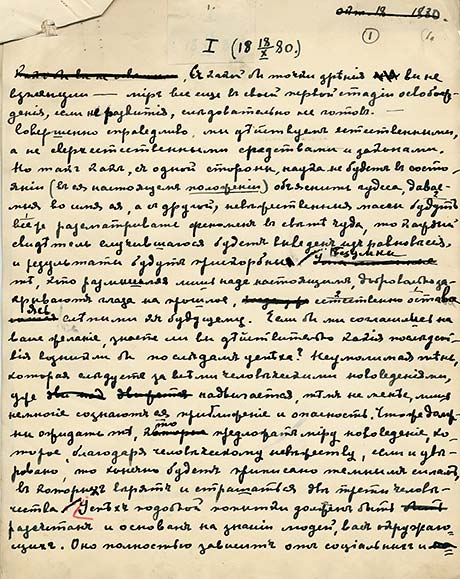 окт. 18 1880.
1
I (18 18/X 80.)
Съ какой бы точки зрѣнія вы не
взглянули — міръ все еще въ своей первой стадіи освобож-
денія, если не развитія, слѣдовательно не готовъ.
Совершенно справедливо, мы дѣйствуемъ естественными,
а не сверхъестественными средствами и законами.
Но такъ какъ, съ одной стороны, наука не будетъ въ состо-
яніи (въ ея настоящемъ положеніи) объяснить чудеса, давае-
мыя во имя ея, а съ другой, невѣжественныя массы будутъ
все же разсматривать феноменъ въ свѣтѣ чуда, то каждый
свидѣтель случившагося будетъ выведенъ изъ равновѣсія,
и результаты будутъ прискорбны.
тѣ, кто размышляя лишь надъ настоящимъ, добровольно за-
крываютъ глаза на прошлое, естественно оста
слѣпыми къ будущему. Если бы мы согласились на
ваше желаніе, знаете ли вы дѣйствительно какія послѣдст-
вія возникли бы по слѣдамъ успѣха? Неумолимая тѣнь,
которая слѣдуетъ за всѣми человѣческими нововведеніями,
уже надвигается, тѣмъ не менѣе, лишь
немногіе сознаютъ ея приближеніе и опасность. Чтоже должны
ны ожидать тѣ, кто предложатъ міру нововведеніе, ко-
торое, благодаря человѣческому невѣжеству, если и увѣ-
ровано, то конечно будетъ приписано темнымъ силамъ,
въ которыхъ вѣрятъ и страшатся двѣ трети человѣ-
чества. Успѣхъ подобной попытки долженъ быть
разсчитанъ и основанъ на знаніи людей, васъ окружаю-
щихъ. Оно полностью зависитъ отъ соціальныхъ и